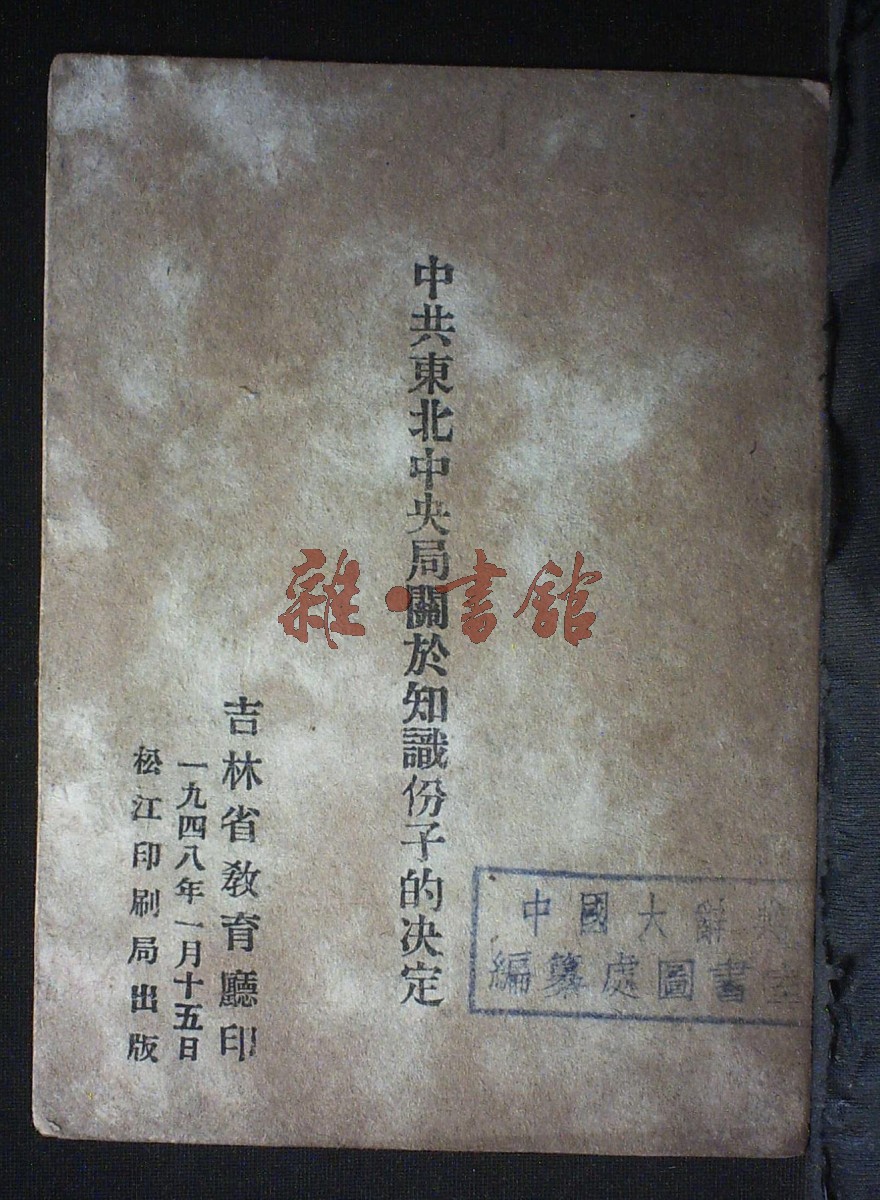 中共東北中央局關於知識份子的決定
吉林省教育廳印
一九四八年一月十五日
松江印刷局出版
雜·書館
中國大辭典
編纂處圖書